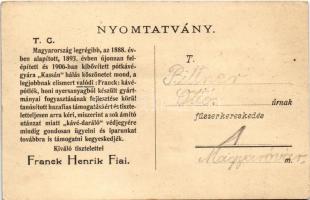 NYOMTATVÁNY.
T. C.
Magyarország legrégibb, az 1888. év-
ben alapitott, 1893. évben újonnan fel-
épitett és 1906-ban kibővitett pótkávé-
gyára „Kassán” hálás köszönetet mond, a
legjobbnak elismert valódi :Franck: kávé-
pótlék, honi nyersanyagból készült gyárt-
mányai fogyasztásának fejlesztése körül
tanúsitott hazafias támogatásáért és tisz-
telettel jelen arra kéri, miszerint a sok ámitó
utánzat miatt „kávé-daráló” védjegyére
mindig gondosan ügyelni és iparunkat
továbbra is támogatni kegyeskedjék.
Kiváló tisztelettel
Franck Henrik Fiai.
T.
Bittner
úrnak
fűszerkereskedés
Magyaróvár
m.